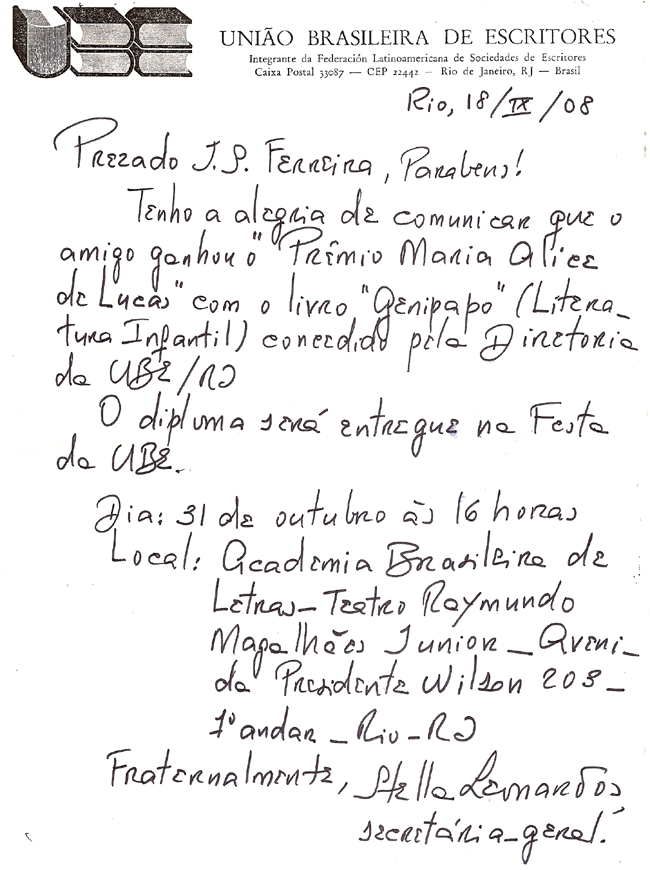 UBE
UNIÃO BRASILEIRA DE ESCRITORES
Integrante da Federación Latinoamericana de Sociedades de Escritores
Caixa Postal 33087 — CEP 22442 — Rio de Janeiro, RJ — Brasil
Rio, 18/IX/08
Prezado J.S. Ferreira, Parabens!
Tenho a alegria de comunicar que o
amigo ganhou o "Prêmio Maria Alice
de Lucas" com o livro "Genipapo" (Litera_
tura Infantil) concedido pela Diretoria
da UBE/RJ
O diploma será entregue na Festa
da UBE.
Dia: 31 de outubro às 16 horas
Local: Academia Brasileira de
Letras_Teatro Raymundo
Magalhães Junior _ Aveni_
da Presidente Wilson 203_
1º andar _ Rio_RJ
Fraternalmente, Stella Leonardos,
secretária_geral.